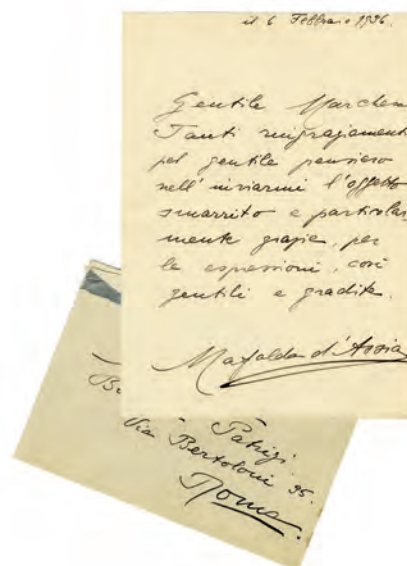 il 6 Febbraio 1936.
Gentile
Tanti ringraziamenti
pel gentile pensiero
nell'inviarmi l'oggetto
smarrito e particolar
mente grazie, per
le espressioni, così
gentili e gradite.
Mafalda d'Assia
Patrizi
Via Bertoloni 35.
Roma.